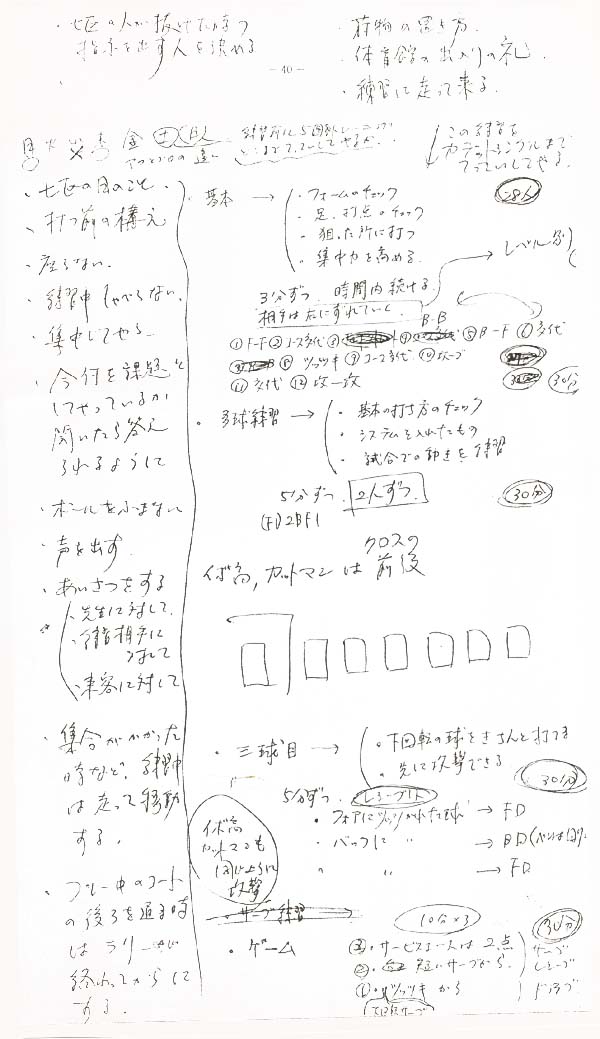 七区の人が抜けた時の
指示を出す人を決める
・荷物の置き方.
・体育館の出入りの礼.
・練習に走って来る.
－40－
月 火 金 土 日
この練習を
までてっていしてやる.
・七区の目のこと.
・打つ前の構え
・座らない.
・練習中しゃべらない.
・集中してやる
・今何を課題と
してやっているか
聞いたら答え
られるように
・ボールをふまない
・声を出す.
・あいさつをする
・先生に対して.
・練習相手に
対して
・来客に対して
・集合がかかった
時など、練習中
は走って移動
する.
・プレー中のコート
の後ろを通る時
は ラリーが
終わってからに
する.
・基本 →
・フォームのチェック
・足、打点のチェック
・狙った所に打つ
・集中力を高める.
レベル別
3分ずつ 時間内続ける.
相手は左にずれていく
B-B
①F-F ②コース多代 ⑤B-F ⑥多代
ツッツキ ⑨コース多代
30分
・多球練習 →
・基本の打ち方のチェック
・システムを入れたもの
・試合での動きを練習
5分ずつ. 2人ずつ.
30分
(F)2BF1
クロスの
イボ高, カットマンは 前後
・三球目 →
・下回転の球をきちんと打てる
・先に攻撃できる
30分
5分ずつ.
・フォアにツッツかれた球 → FD
・バックに 〃 → BD
〃 〃 → FD
イボ高
カットマンも
同じように
攻撃
・サーブ練習
・ゲーム
10分×3
30分
③・サービスエースは2点
②・短いサーブから.
①・ツッツキから
サーブ
レシーブ
ドライブ
下回転サーブ